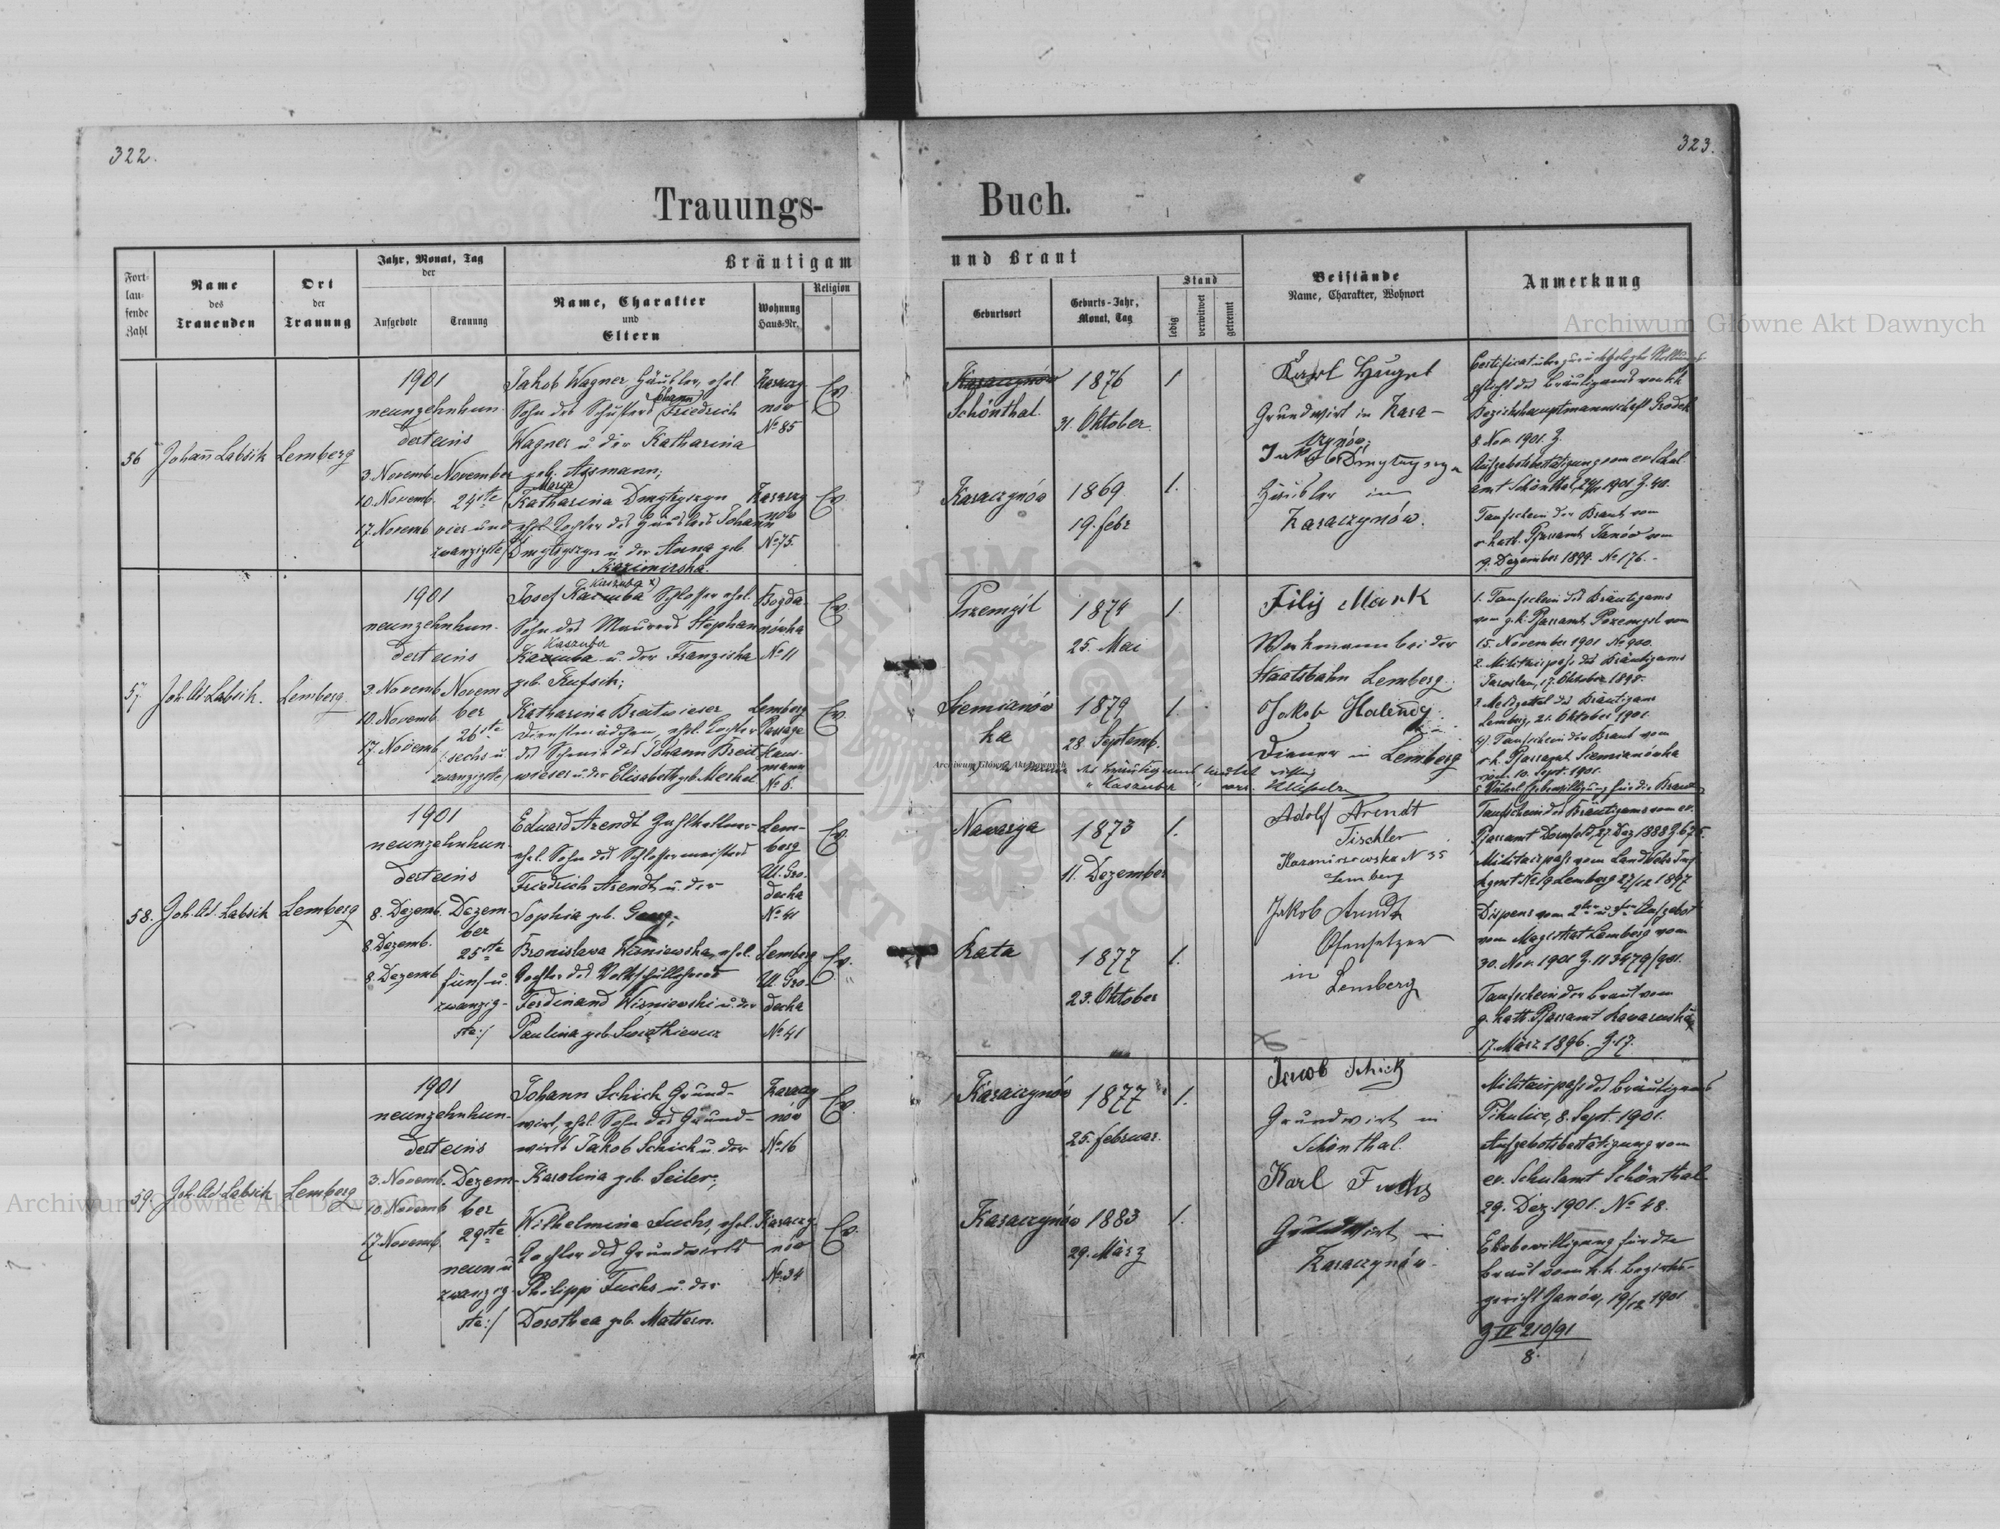 322.
323.
Trauungs-
Buch.
Fort-
lau-
fende
Zahl
Name
des
Trauenden
Ort
der
Trauung
Jahr, Monat, Tag
der
Aufgebote
Trauung
Bräutigam
Name, Charakter
und
Eltern
Wohnung
Haus-Nr.
Religion
und Braut
Geburtsort
Geburts-Jahr,
Monat, Tag
Stand
ledig
verwitwet
getrennt
Beistände
Name, Charakter, Wohnort
Anmerkung
Archiwum Główne Akt Dawnych
56
Johann Labsik
Lemberg
1901
neunzehnhun-
derteins
3. Novemb.
10. Novemb.
17. Novemb.
November
24ste
vier und
zwanzigste/
Jakob Wagner, Häusler, ehel.
Sohn des Schusters Johann Friedrich
Wagner u. der Katharina
geb. Assmann;
Maria
Katharina Dmytryszyn
ehel. Tochter des Häuslers Johann
Dmytryszyn u. der Anna geb.
Kazimirska.
Karaczy
nov
No 85
Karaczy
nóv
No 75.
Ev.
Ev.
Karaczynów
Schönthal.
1876
31. Oktober.
1
Karaczynów
1869
19. febr
1.
Karl Hugel
Grundwirt in Kara-
czynów;
Dmytryszyn
Häusler in
Karaczynów.
Certificat über
pflicht des Bräutigams von kk
Bezirkshauptmannschaft Grodek
8. Nov. 1901. Z.
Aufgebotsbestätigung vom ev. Schul
amt Schönthal, 1901 Z. 40.
Taufschein der Braut vom
r. kath. Pfarramt Janów vom
9. Dezember 1899. No 176.-
57
Joh. Ad. Labsik.
Lemberg
1901
neunzehnhun-
derteins
3. Novemb.
10. Novemb.
17. Novemb.
Novem
ber
26ste
/: sechs u.
zwanzigste/
Kaszuba x)
Josef Kazuba Schlosser ehel.
Sohn des Maurers Stephan
Kaszuba
Kazuba u. der Franziska
geb. Trufsik;
Katharina Breitwieser
Dienstmädchen, ehel. Tochter
des Schmiedes Johann Breit
wieser u. der Elisabeth geb. Merkel
Bogda-
nówka
No 11
Lemberg
Passage
Haus-
mann
No 6.
Ev.
Ev.
Przemyśl
1874
25. Mai
1.
Siemianów
ka
1879
28. Septemb.
1.
Archiwum Główne Akt Dawnych
Name des Bräutigams lautet richtig
"Kaszuba"
Filip Mark
Werkmann bei der
Staatsbahn Lemberg.
Jakob Halendy
Diener in Lemberg
1. Taufschein des Bräutigams
vom g. k. Pfarramt Przemysl vom
15. November 1901 No 900.
2. Militairpass des Bräutigams
Jaroslau, 17. Oktober 1898.
3. Meldzettel des Bräutigams
Lemberg, 21. Oktober 1901.
4) Taufschein der Braut vom
r. k. Pfarramt Siemianówka
vom 10. Sept. 1901.
58.
Joh. Ad. Labsik
Lemberg
1901
neunzehnhun-
derteins
8. Dezemb.
8. Dezemb.
8. Dezemb.
Dezem
ber
25ste
fünf u.
zwanzig-
ste:/
Eduard Arendt Zahlkellner
ehel. Sohn des Schlossermeisters
Friedrich Arendt u. der
Sophia geb. Gang;
Bronislava Wisniewska, ehel.
Tochter des Volksschullehrers
Ferdinand Wisniewski u. der
Paulina geb. Swiatkiewicz
Lem-
berg
Ul. Gro-
decka
No 41
Lemberg
Ul. Gro-
decka
No 41
Ev.
Ev.
Nawarya
1873
11. Dezember
1.
Rata
1877
23. Oktober
1.
Adolf Arendt
Tischler
Kazmirzowska N 35
Lemberg
Jakob Arendt
Ofensetzer
in
Lemberg
Taufschein des Bräutigams vom ev.
Pfarramt Dornfeld, 27. Dez 1888 Z 675.
Militairpass vom Landwehr Inf.
Rgmt No 19 Lemberg 27/12 1897
Dispens vom 2ten u. 3ten Aufgebot
vom Magistrat Lemberg vom
30. Nov. 1901 Z. 113479/901.
Taufschein der Braut vom
g. kath. Pfarramt
17. März 1896. Z. 17.
59.
Joh. Ad. Labsik
Lemberg
1901
neunzehnhun-
derteins
3. Novemb.
10. Novemb
17. Novemb.
Dezem-
ber
29ste
neun u
zwanzig-
ste:/
Johann Schick Grund-
wirt, ehel. Sohn des Grund-
wirts Jakob Schick u. der
Karolina geb. Seiler;
Wilhelmina Fuchs, ehel.
Tochter des Grundwirts
Philipp Fuchs u. der
Dorothea geb. Mattern.
Karaczy
nów
No 16
Karaczy-
nów
No 34
Ev.
Ev.
Karaczynów
1877
25. februar.
1.
Karaczynów
1883
29. März
1.
Jacob Schick
Grundwirt in
Schönthal.
Karl Fuchs
Grundwirt in
Karaczynów.
Militairpass des Bräutigams
Pikulice, 8. Sept. 1901.
Aufgebotsbestätigung vom
ev. Schulamt Schönthal
29. Dez. 1901. No 48.
Ehebewilligung für die
Braut vom k. k. Bezirks-
gericht Janów, 19/12 1901
Z II 210/91
8.
Archiwum Główne Akt Dawnych